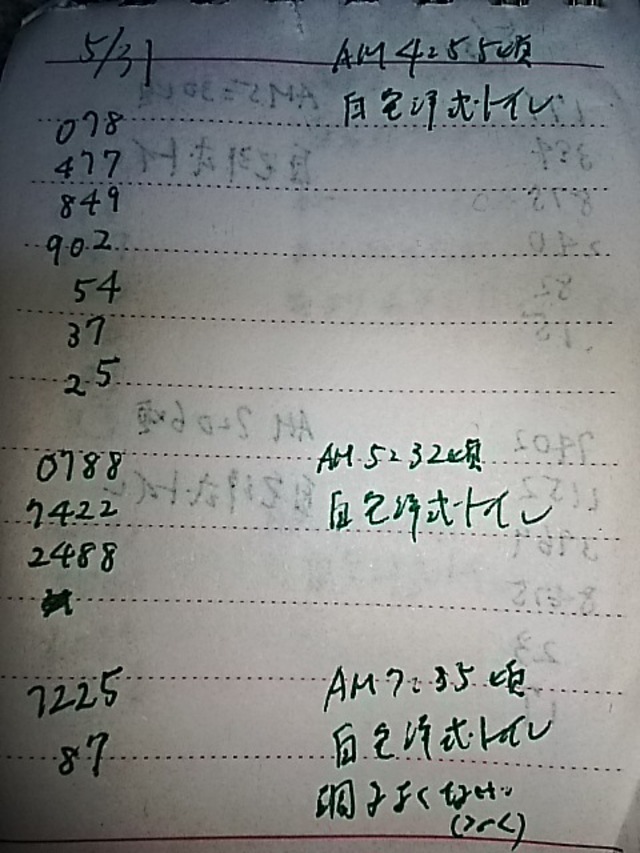 5/31 AM 4:55頃
自宅洋式トイレ
078
477
849
902
54
37
25
0788 AM 5:32頃
7422 自宅洋式トイレ
2488
7225 AM 7:35頃
87 自宅洋式トイレ
調子よくない
(>_<)